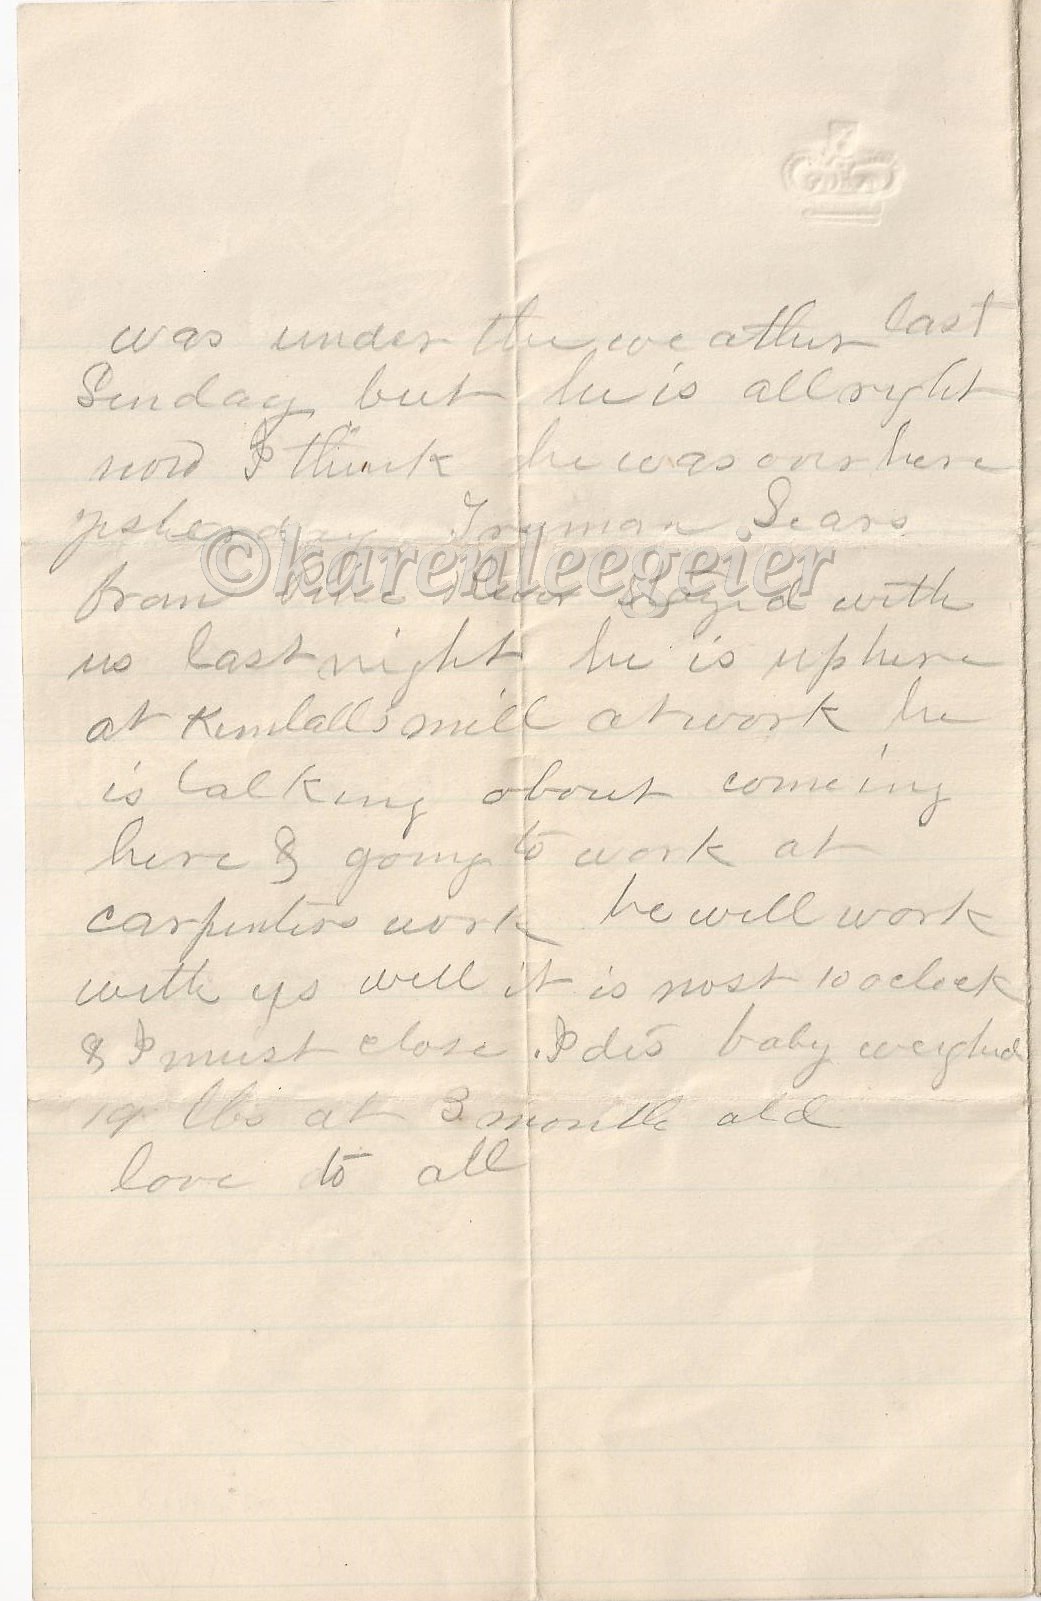 was under the weather last
Sunday but he is all right
now I think he was over here
yesterday Truman Sears
©karenleegeier
from Pine River stayed with
us last night he is up here
at Kimballs mill at work he
is talking about comeing
here & going to work at
carpenters work he will work
with us well it is most 10 oclock
& I must close . Ides baby weighed
19 lbs at 3 month old
love to all